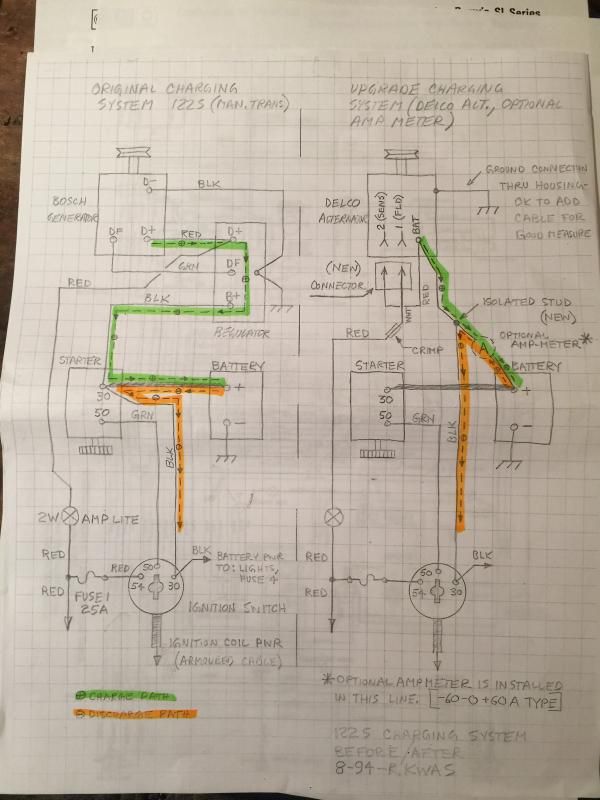 ORIGINAL CHARGING
SYSTEM 122S (MAN. TRANS)
D-
BLK
BOSCH
GENERATOR
DF
D+
RED
D+
GRN
DF
RED
BLK
B+
REGULATOR
STARTER
BATTERY
30
+
50
GRN
-
BLK
2W
AMP LITE
RED
RED
RED
FUSE 1
25A
50
54
30
BLK
BATTERY PWR
TO: LIGHTS,
FUSE 4
IGNITION SWITCH
IGNITION COIL PWR
(ARMOURED CABLE)
⊕ CHARGE PATH
⊖ DISCHARGE PATH
UPGRADE CHARGING
SYSTEM (DELCO ALT., OPTIONAL
AMP METER)
GROUND CONNECTION
THRU HOUSING-
OK TO ADD
CABLE FOR
GOOD MEASURE
DELCO
ALTERNATOR
2 (SENS)
1 (FLD)
BAT
(NEW)
CONNECTOR
RED
WHT
ISOLATED STUD
(NEW)
OPTIONAL
AMP-METER*
RED
CRIMP
STARTER
BATTERY
30
+
50
GRN
-
BLK
RED
RED
50
54
30
BLK
*OPTIONAL AMPMETER IS INSTALLED
IN THIS LINE. [-60-0+60 A TYPE]
122S CHARGING SYSTEM
BEFORE/AFTER
8-94-R.KWAS